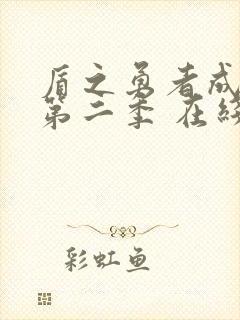 盾之勇者成
第二季 在线
彩虹鱼